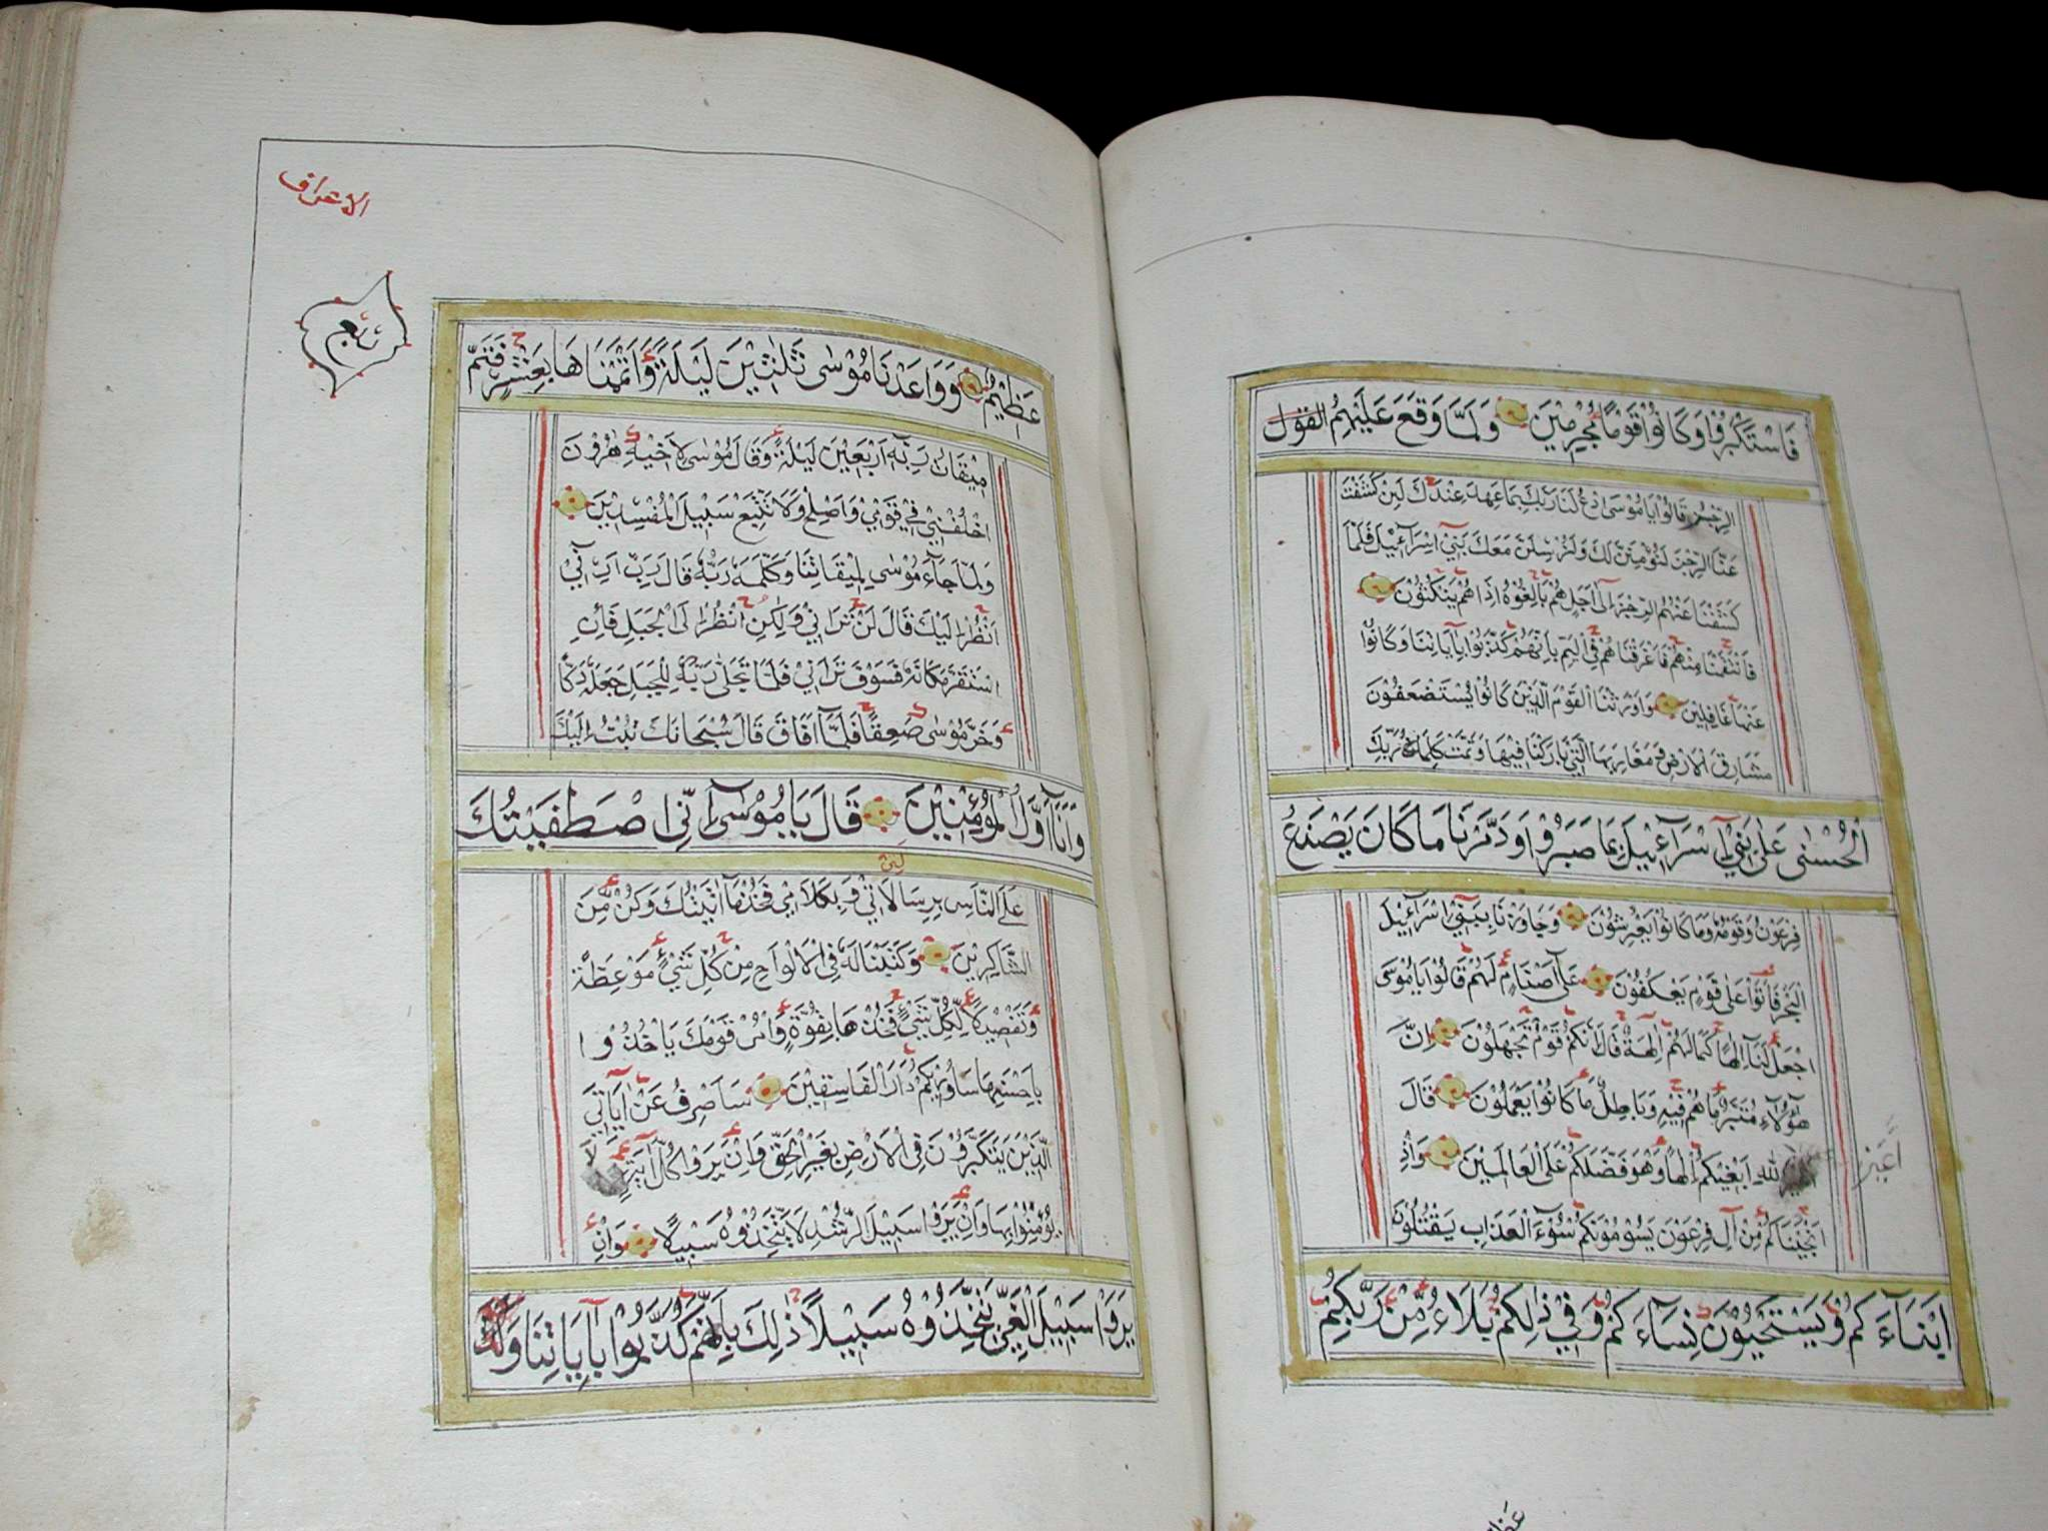 فَاسْتَكْبَرُوْا وَكَانُوْا قَوْمًا مُجْرِمِيْنَ وَلَمَّا وَقَعَ عَلَيْهِمُ القَوْلُ
الرِّجْزُ قَالُوْا يَا مُوْسَى ادْعُ لَنَا رَبَّكَ بِمَا عَهِدَ عِنْدَكَ لَئِنْ كَشَفْتَ
عَنَّا الرِّجْزَ لَنُؤْمِنَنَّ لَكَ وَلَنُرْسِلَنَّ مَعَكَ بَنِيْ اِسْرَآئِيْلَ فَلَمَّا
كَشَفْنَا عَنْهُمُ الرِّجْزَ اِلَى اَجَلٍ هُمْ بَالِغُوْهُ اِذَا هُمْ يَنْكُثُوْنَ
فَانْتَقَمْنَا مِنْهُمْ فَاَغْرَقْنَاهُمْ فِي الْيَمِّ بِاَنَّهُمْ كَذَّبُوْا بِاٰيَاتِنَا وَكَانُوْا
عَنْهَا غَافِلِيْنَ وَاَوْرَثْنَا الْقَوْمَ الَّذِيْنَ كَانُوْا يُسْتَضْعَفُوْنَ
مَشَارِقَ الْاَرْضِ وَمَغَارِبَهَا الَّتِيْ بَارَكْنَا فِيْهَا وَتَمَّتْ كَلِمَاتُ رَبِّكَ
الْحُسْنٰى عَلٰى بَنِيْ اِسْرَآئِيْلَ بِمَا صَبَرُوْا وَدَمَّرْنَا مَا كَانَ يَصْنَعُ
فِرْعَوْنُ وَقَوْمُهُ وَمَا كَانُوْا يَعْرِشُوْنَ وَجَاوَزْنَا بِبَنِيْ اِسْرَآئِيْلَ
الْبَحْرَ فَاَتَوْا عَلٰى قَوْمٍ يَعْكُفُوْنَ عَلٰى اَصْنَامٍ لَهُمْ قَالُوْا يَا مُوْسَى
اجْعَلْ لَنَا اِلٰهًا كَمَا لَهُمْ اٰلِهَةٌ قَالَ اِنَّكُمْ قَوْمٌ تَجْهَلُوْنَ اِنَّ
هٰؤُلَآءِ مُتَبَّرٌ مَا هُمْ فِيْهِ وَبَاطِلٌ مَا كَانُوْا يَعْمَلُوْنَ قَالَ
اَغَيْرَ اللّٰهِ اَبْغِيْكُمْ اِلٰهًا وَهُوَ فَضَّلَكُمْ عَلَى الْعَالَمِيْنَ وَاِذْ
اَنْجَيْنَاكُمْ مِنْ اٰلِ فِرْعَوْنَ يَسُوْمُوْنَكُمْ سُوْٓءَ الْعَذَابِ يَقْتُلُوْنَ
اَبْنَآءَكُمْ وَيَسْتَحْيُوْنَ نِسَآءَكُمْ وَفِيْ ذٰلِكُمْ بَلَآءٌ مِنْ رَبِّكُمْ
الاعراف
عَظِيْمٌ وَوَاعَدْنَا مُوْسٰى ثَلٰثِيْنَ لَيْلَةً وَاَتْمَمْنَاهَا بِعَشْرٍ فَتَمَّ
مِيْقَاتُ رَبِّهٖ اَرْبَعِيْنَ لَيْلَةً وَقَالَ مُوْسٰى لِاَخِيْهِ هٰرُوْنَ
اخْلُفْنِيْ فِيْ قَوْمِيْ وَاَصْلِحْ وَلَا تَتَّبِعْ سَبِيْلَ الْمُفْسِدِيْنَ
وَلَمَّا جَآءَ مُوْسٰى لِمِيْقَاتِنَا وَكَلَّمَهُ رَبُّهُ قَالَ رَبِّ اَرِنِيْ
اَنْظُرْ اِلَيْكَ قَالَ لَنْ تَرَانِيْ وَلٰكِنِ انْظُرْ اِلَى الْجَبَلِ فَاِنِ
اسْتَقَرَّ مَكَانَهُ فَسَوْفَ تَرَانِيْ فَلَمَّا تَجَلّٰى رَبُّهُ لِلْجَبَلِ جَعَلَهُ دَكًّا
وَخَرَّ مُوْسٰى صَعِقًا فَلَمَّا اَفَاقَ قَالَ سُبْحَانَكَ تُبْتُ اِلَيْكَ
وَاَنَا اَوَّلُ الْمُؤْمِنِيْنَ قَالَ يَا مُوْسٰى اِنِّي اصْطَفَيْتُكَ
عَلَى النَّاسِ بِرِسَالَاتِيْ وَبِكَلَامِيْ فَخُذْ مَا اٰتَيْتُكَ وَكُنْ مِنَ
الشَّاكِرِيْنَ وَكَتَبْنَا لَهُ فِي الْاَلْوَاحِ مِنْ كُلِّ شَيْءٍ مَوْعِظَةً
وَتَفْصِيْلًا لِكُلِّ شَيْءٍ فَخُذْهَا بِقُوَّةٍ وَاْمُرْ قَوْمَكَ يَاْخُذُوْا
بِاَحْسَنِهَا سَاُورِيْكُمْ دَارَ الْفَاسِقِيْنَ سَاَصْرِفُ عَنْ اٰيَاتِيَ
الَّذِيْنَ يَتَكَبَّرُوْنَ فِي الْاَرْضِ بِغَيْرِ الْحَقِّ وَاِنْ يَرَوْا كُلَّ اٰيَةٍ لَا
يُؤْمِنُوْا بِهَا وَاِنْ يَرَوْا سَبِيْلَ الرُّشْدِ لَا يَتَّخِذُوْهُ سَبِيْلًا وَاِنْ
يَرَوْا سَبِيْلَ الْغَيِّ يَتَّخِذُوْهُ سَبِيْلًا ذٰلِكَ بِاَنَّهُمْ كَذَّبُوْا بِاٰيَاتِنَا